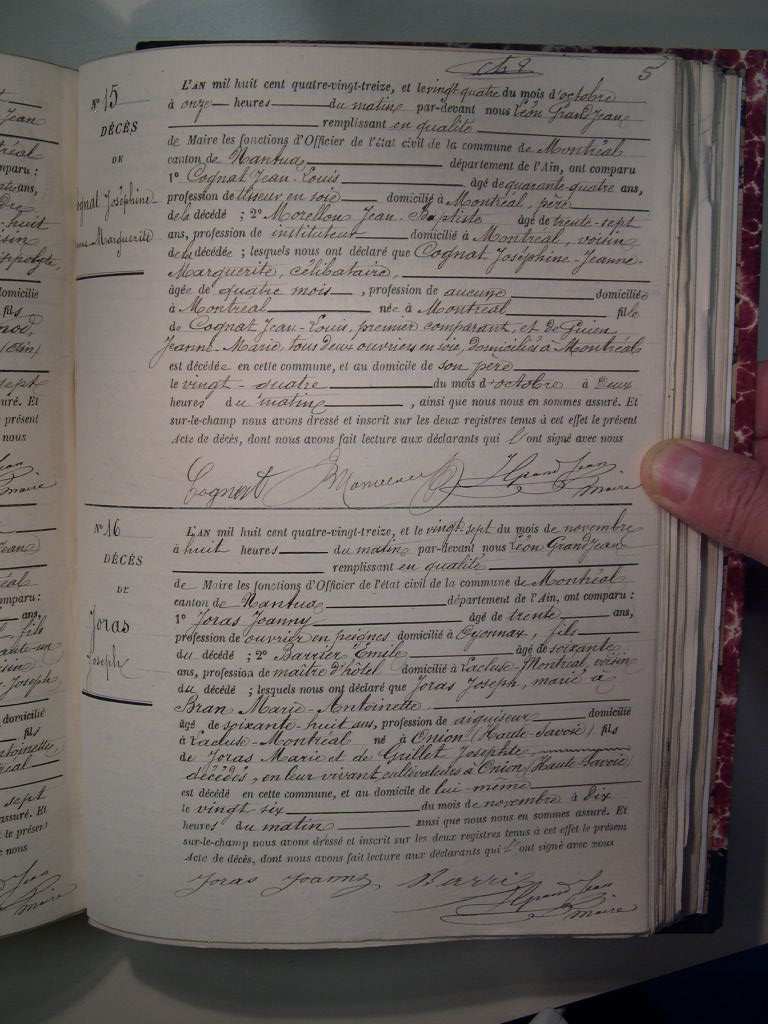 5
N° 15
DÉCÈS
DE
Cognat Joséphine
Jeanne-Marguerite
L'AN mil huit cent quatre-vingt-treize, et le vingt quatre du mois d'octobre
à onze heures du matin par-devant nous Léon GrandJean
remplissant en qualité
de Maire les fonctions d'Officier de l'état civil de la commune de Montréal
canton de Nantua département de l'Ain, ont comparu
1° Cognat Jean-Louis âgé de quarante quatre ans,
profession de tisseur en soie domicilié à Montréal, père
de la décédé ; 2° Morellon Jean-Baptiste âgé de trente-sept
ans, profession de instituteur domicilié à Montréal, voisin
de la décédée ; lesquels nous ont déclaré que Cognat Joséphine-Jeanne-
Marguerite, célibataire,
âgée de quatre mois, profession de aucune domiciliée
à Montréal née à Montréal fille
de Cognat Jean-Louis, premier comparant, et de
Jeanne-Marie, tous deux ouvriers en soie, domiciliés à Montréal
est décédée en cette commune, et au domicile de son père
le vingt-quatre du mois d'octobre à Deux
heures du matin, ainsi que nous nous en sommes assuré. Et
sur-le-champ nous avons dressé et inscrit sur les deux registres tenus à cet effet le présent
Acte de décès, dont nous avons fait lecture aux déclarants qui l'ont signé avec nous
GrandJean
maire
N° 16
DÉCÈS
DE
Joras
Joseph
L'AN mil huit cent quatre-vingt-treize, et le vingt-sept du mois de novembre
à huit heures du matin par-devant nous Léon GrandJean
remplissant en qualité
de Maire les fonctions d'Officier de l'état civil de la commune de Montréal
canton de Nantua département de l'Ain, ont comparu :
1° Joras Joanny âgé de trente ans,
profession de ouvrier en peignes domicilié à Oyonnax, fils
du décédé ; 2° Barrier Émile âgé de soixante
ans, profession de maître d'hôtel domicilié à Lacluse-Montréal, voisin
du décédé ; lesquels nous ont déclaré que Joras Joseph, marié à
Bran Marie-Antoinette
âgé de soixante-huit ans, profession de aiguiseur domicilié
à Lacluse-Montréal né à Onion (Haute-Savoie) fils
de Joras Marie et de Grillet Josephte
décédés, en leur vivant cultivateurs à Onion (Haute-Savoie)
est décédé en cette commune, et au domicile de lui-même
le vingt six du mois de novembre à Dix
heures du matin ainsi que nous nous en sommes assuré. Et
sur-le-champ nous avons dressé et inscrit sur les deux registres tenus à cet effet le présent
Acte de décès, dont nous avons fait lecture aux déclarants qui l'ont signé avec nous
Joras Joanny
GrandJean
maire